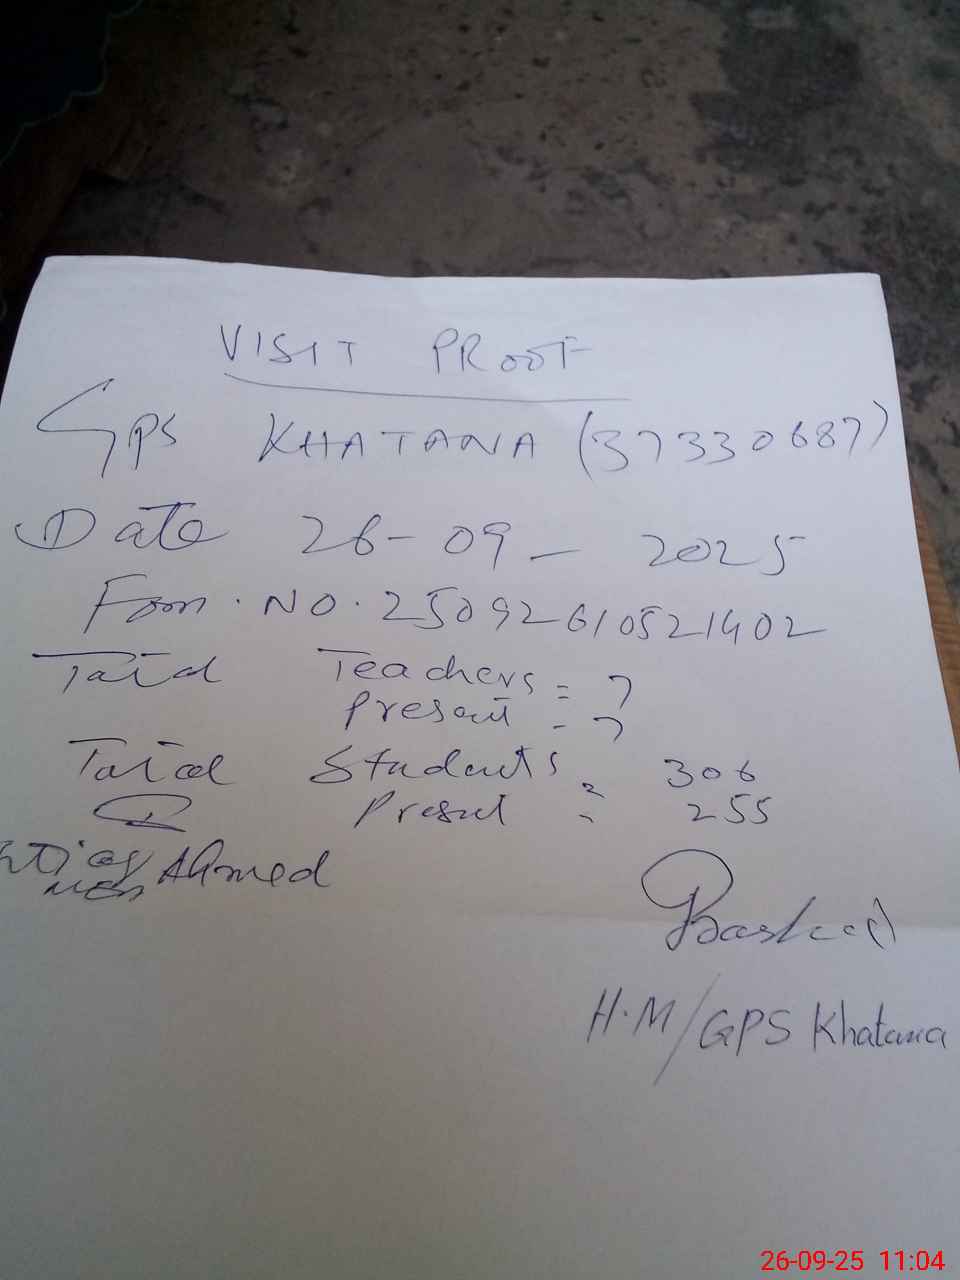 VISIT PROOF
GPS KHATANA (37330687)
Date 26-09-2025
Form. NO. 25092610521402
Total Teachers = 7
Present = 7
Total Students = 306
Present = 255
Ahmed
Rashid
H.M/GPS Khatana
26-09-25 11:04